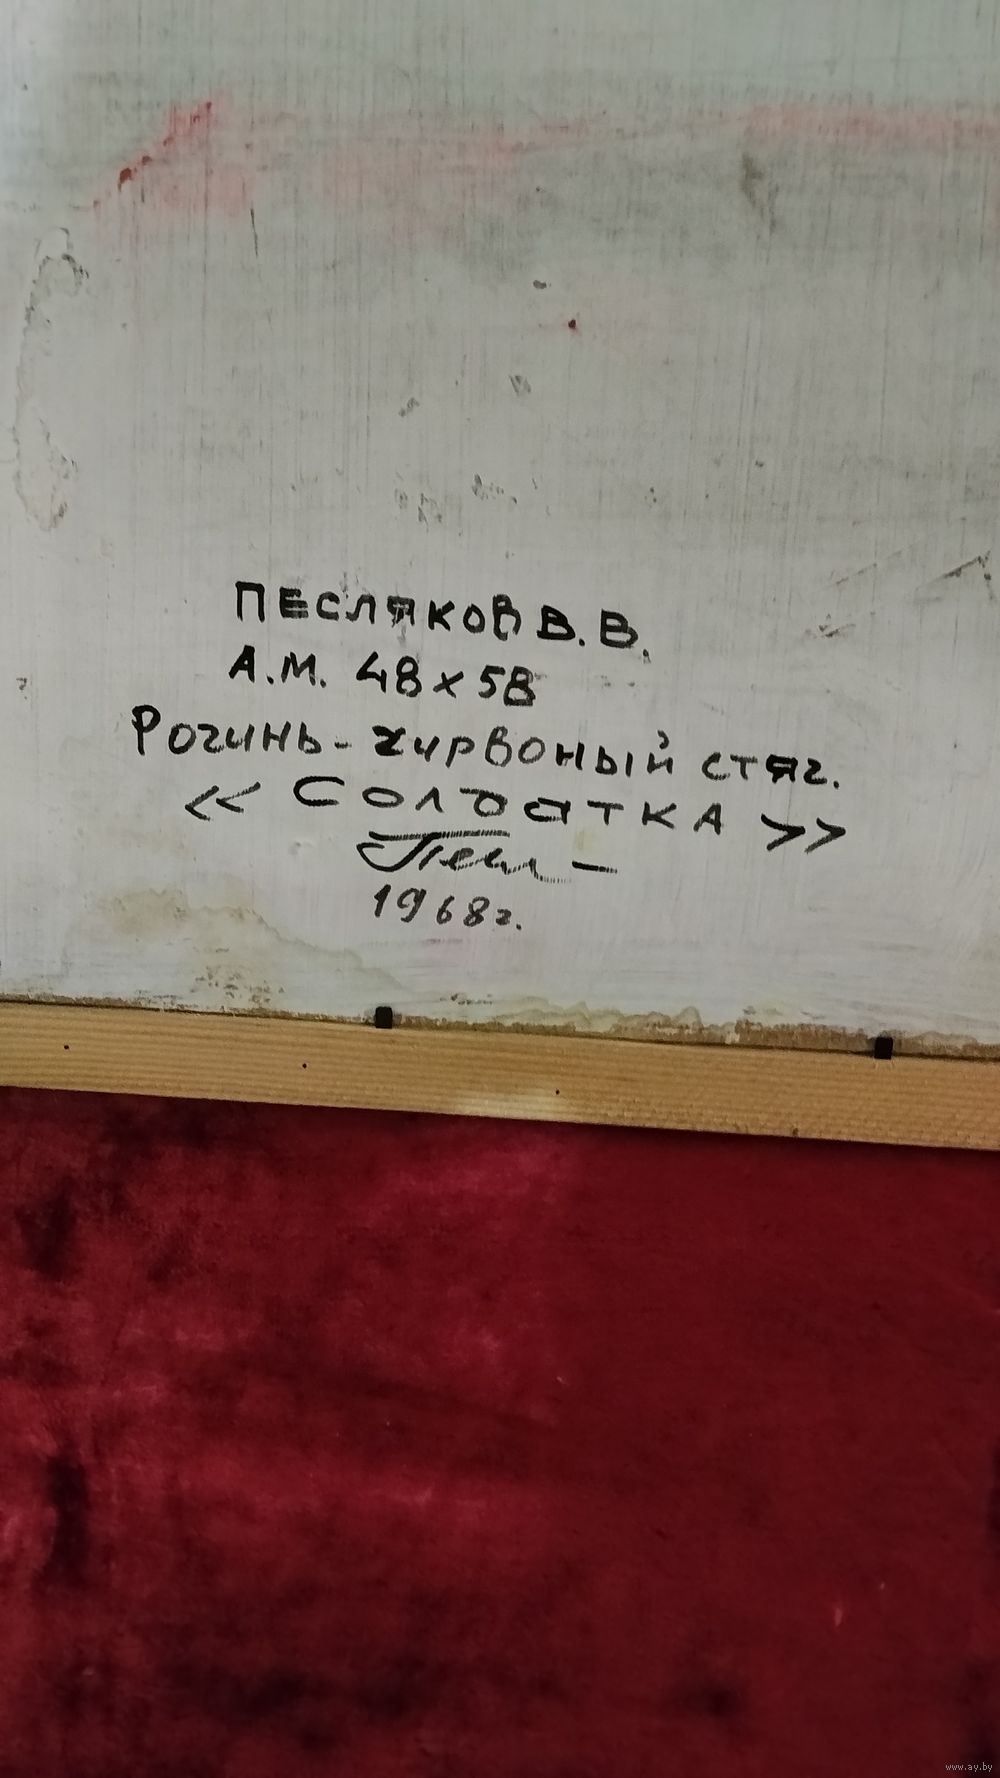 ПЕСЛЯКОВ В.В.
А.М. 48 х 58
Рогинь - хирвоный стяг.
<< СОЛДАТКА >>
1968г.
www.ay.by